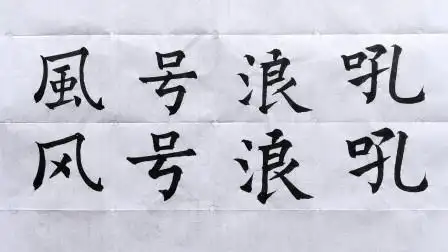 風号浪吼
风号浪吼